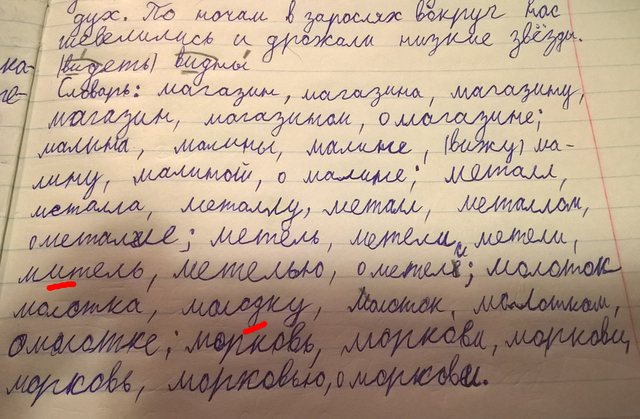 дух. По ночам в зарослях вокруг нас
шевелились и дрожали низкие звёзды.
ка- (видеть) видны
ге- Словарь: магазин, магазина, магазину,
магазин, магазином, о магазине;
малина, малины, малине, (вижу) ма-
лину, малиной, о малине; металл,
металла, металлу, металл, металлом,
о металле; метель, метели, метели,
митель, метелью, о метели; молоток
молотка, молодку, молоток, молотком,
о молотке; морковь, моркови, моркови,
морковь, морковью, о моркови.